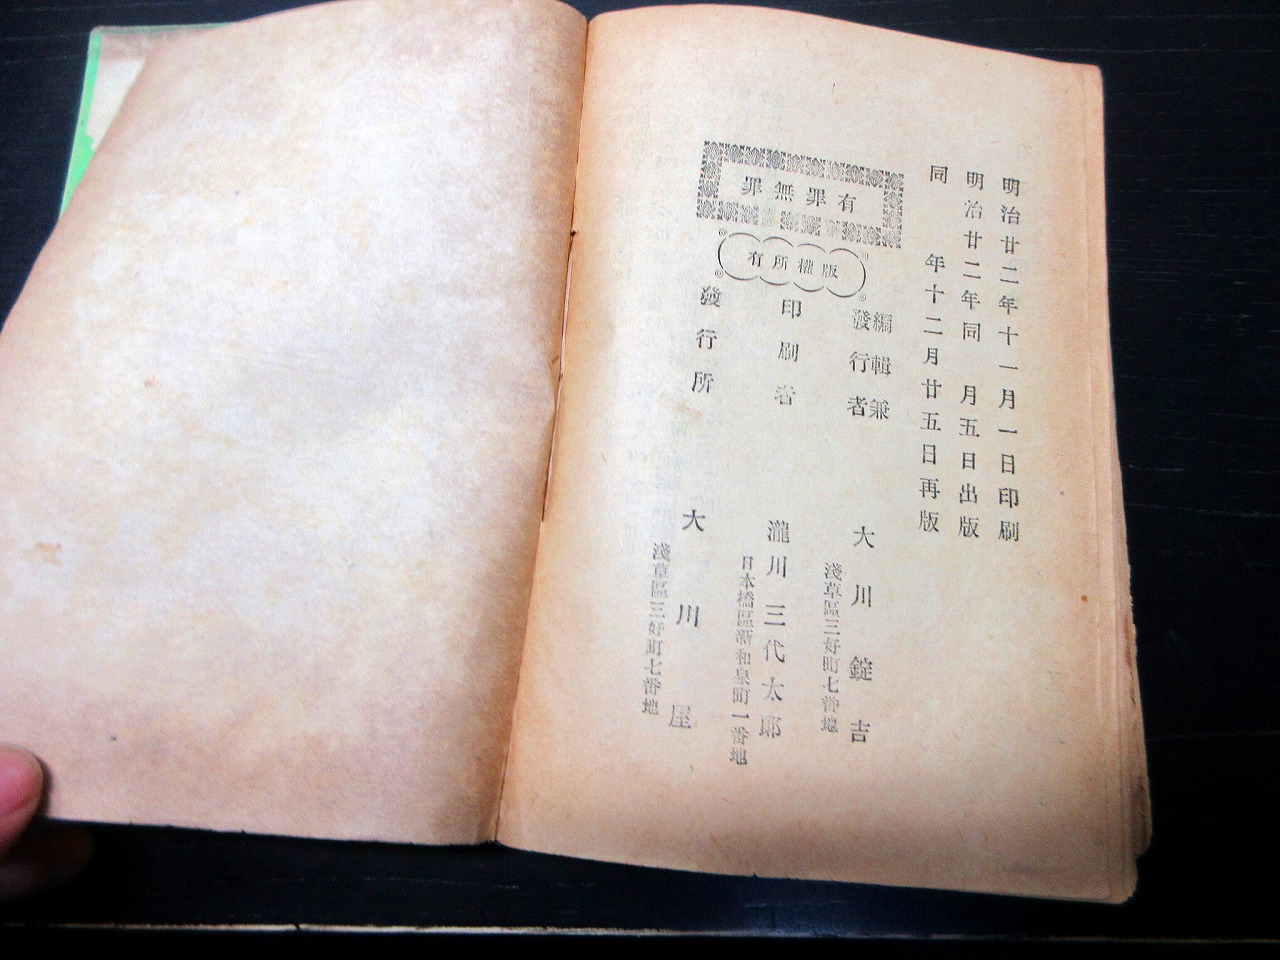 明治廿二年十一月一日印刷
明治廿二年同　月五日出版
同　　年十二月廿五日再版
有罪無罪
版權所有
編輯兼
發行者
大川錠吉
淺草區三好町七番地
印刷者
瀧川三代太郎
日本橋區新和泉町一番地
發行所
大川屋
淺草區三好町七番地